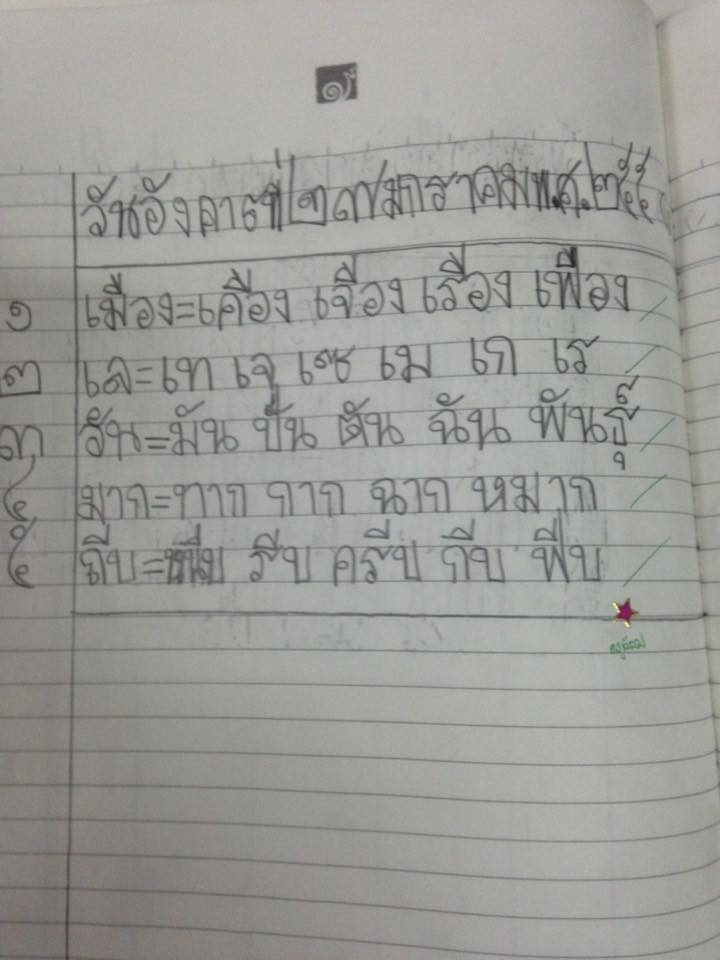 ๑๙
วันอังคารที่ ๒๗ มกราคม พ.ศ. ๒๕๕
๑ เมือง=เคือง เจือง เรือง เฟือง
๒ เล=เท เจ เซ เม เก เร
๓ วัน=มัน ปั้น ตัน ฉัน พันธุ์
๔ มาก=ทาก กาก ฉาก หมาก
๕ ถีบ=หนีบ รีบ ครีบ กีบ ฟีบ